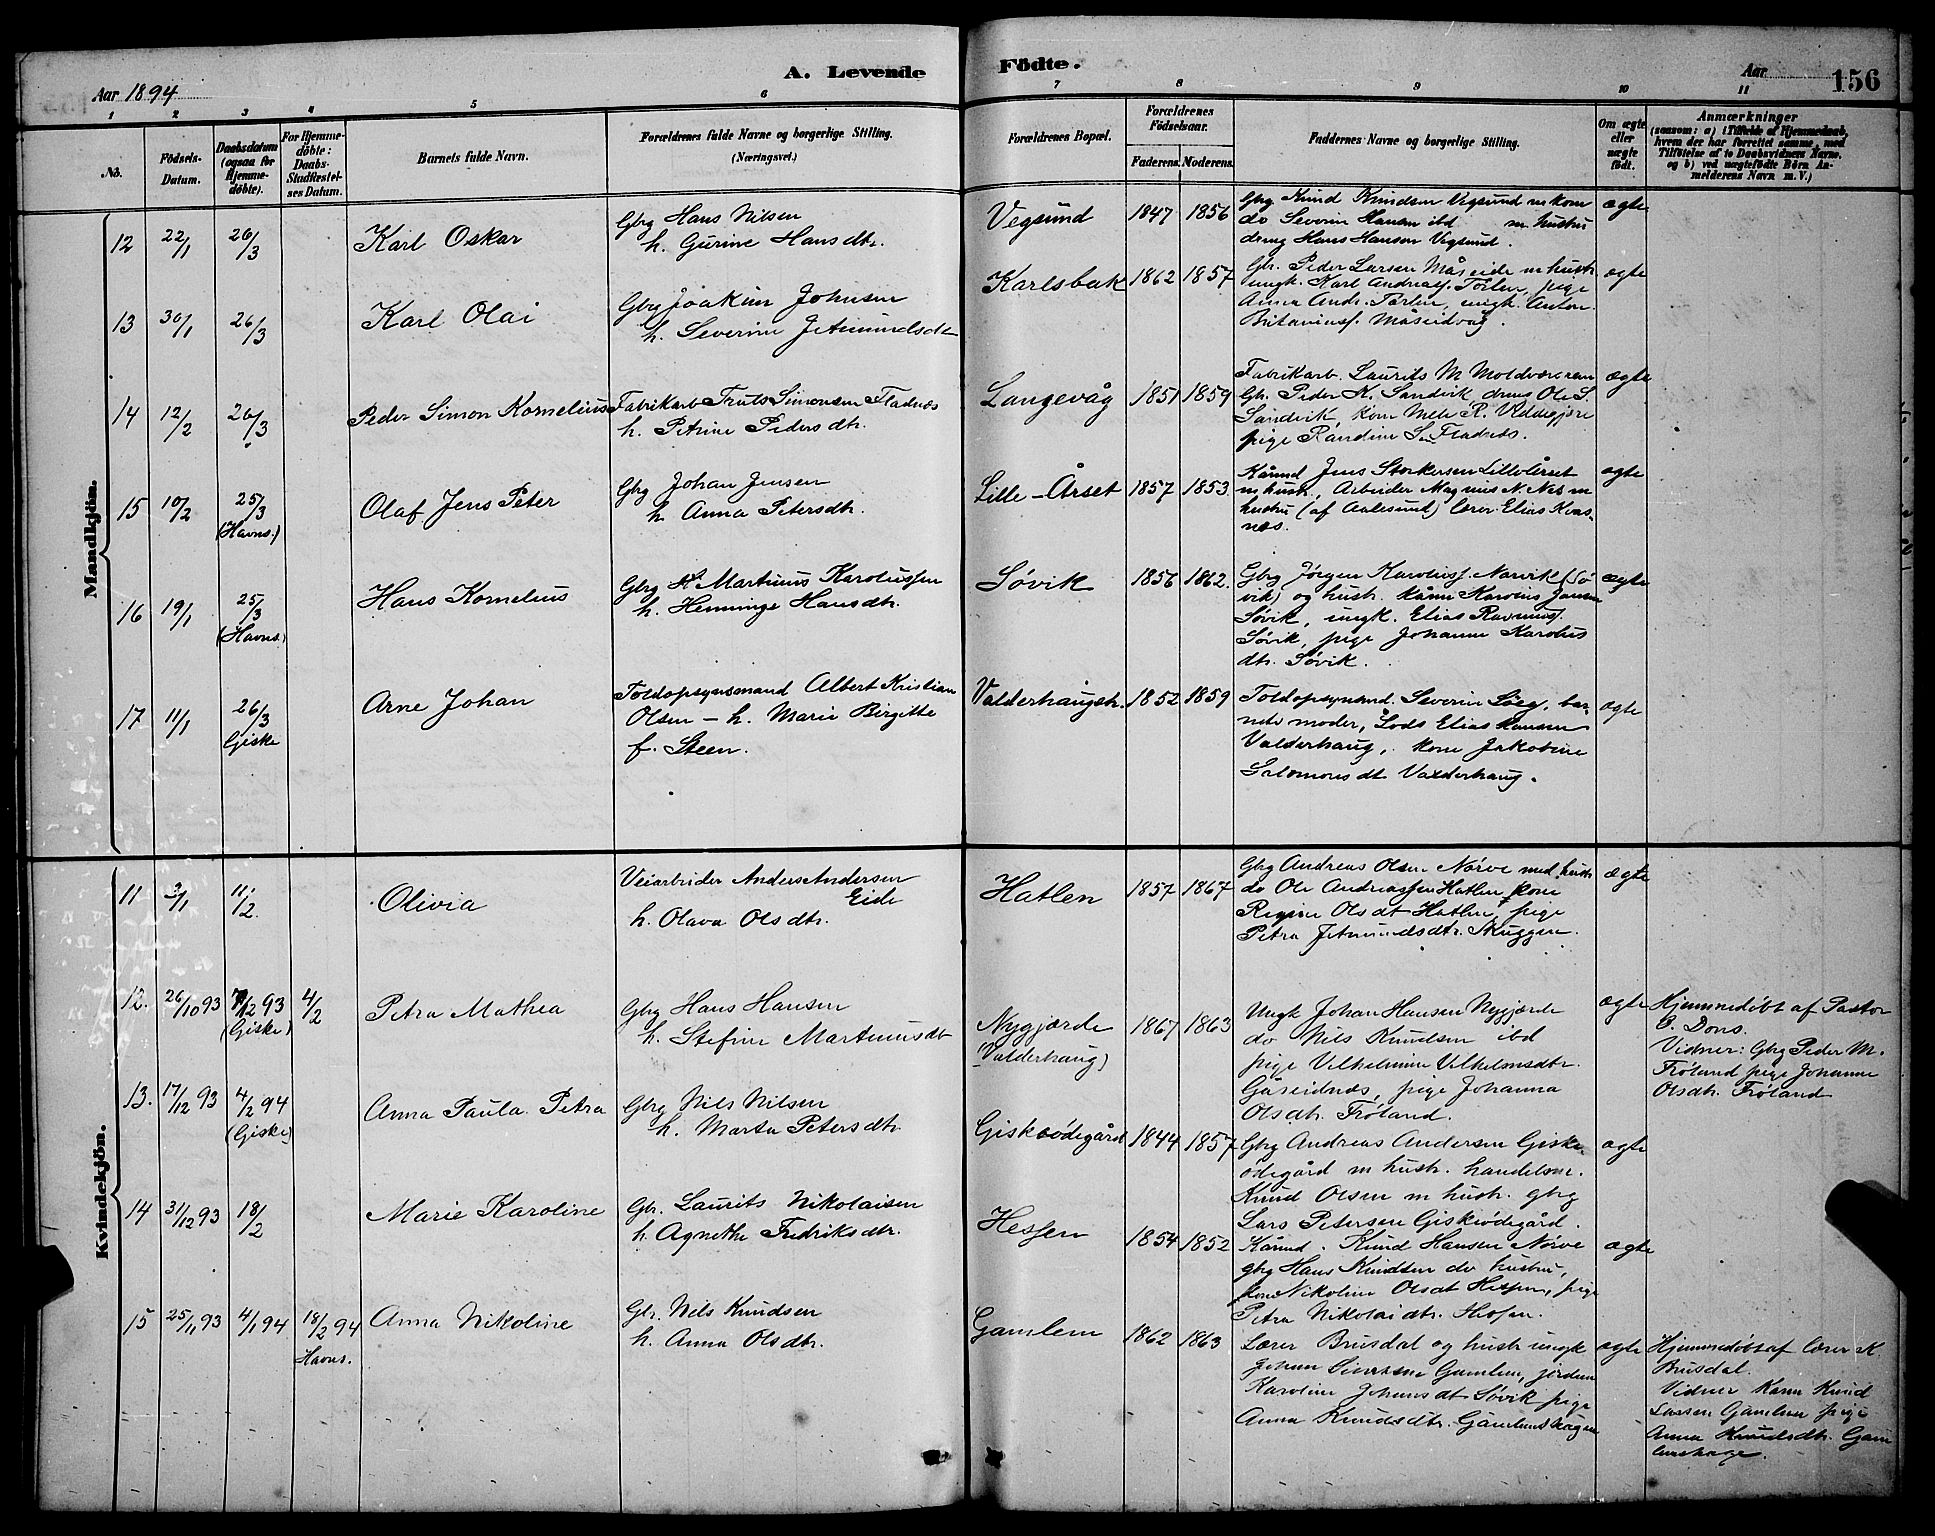 A. Levende Födte.
Aar 1894
Aar 156
1 2 3 4 5 6 7 8 9 10 11
No.
Födsels-Datum.
Daabsdatum (ogsaa for Hjemme-döbte).
For Hjemme-döbte: Daabs-Stadfæstel-ses Datum.
Barnets fulde Navn.
Forældrenes fulde Navne og borgerlige Stilling. (Næringsvei.)
Forældrenes Bopæl.
Forældrenes Födselsaar.
Faderens. Moderens.
Faddernes Navne og borgerlige Stilling.
Om ægte eller uægte födt.
Anmærkninger
(saasom: a) i Tilfælde af Hjemmedaab, hvem der har forrettet samme, med Tilföielse af to Daabsvidners Navne, og b) ved uægtefödte Börn An-melderens Navn m. V.)
Mandkjön.
12 22/1 26/3 Karl Oskar
Gbrg Hans Nilsen
h. Gurine Hansdtr.
Vegsund 1847 1856
Gbrg Knud Knudsen Vegsund m kone
do Severin Hansen ibd m. hustru
dreng Hans Hansen Vegsund.
ægte
13 30/1 26/3 Karl Olai
Gbrg Joakim Johnsen
h. Severine Jetmundsdtr
Karlsbak 1862 1857
Gbr. Peder Larsen Måseide m hustr.
ungk. Karl Andreas. Torlen, pige
Anna Andr. Torlen, ungk. Anton
Måseidvåg.
ægte
14 12/2 26/3 Peder Simon Kornelius
Fabrikarb Truls Simonsen Fladnæs
h. Petrine Pedersdtr.
Langevåg 1851 1859
Fabrikarb. Laurits M
Gbr. Peder K. Sandvik, dreng Ole S.
Sandvik, kone Mele R.
pige Randine S. Fladnæs.
ægte
15 10/2 25/3 (Havns.) Olaf Jens Peter
Gbrg Johan Jensen
h. Anna Petersdtr.
Lille-Årset 1857 1853
Kårmd Jens Storkersen Lilleårset
m hustr., Arbeider Magnus N. Næs m
hustru (af Aalesund) lærer Elias Kvas-
næs.
ægte
16 19/1 25/3 (Havns.) Hans Kornelius
Gbrg Martinus Karolussen
h. Henninge Hansdtr.
Søvik 1856 1862.
Gbrg Jørgen Karoluss. Narvik (Sø
vik) og hustr. kårm Karolus Jansen
Søvik, ungk. Elias Rasmuss.
Søvik, pige Johanne Karolus
dtr. Søvik.
ægte
17 11/1 26/3 Giske Arne Johan
Toldopsynsmand Albert Kristian
Olsen – h. Marie Birgitte
f. Steen.
Valderhaugstr. 1852 1859
Toldopsynsmd. Severin, bar-
nets moder, Lods Elias Hansen
Valderhaug, kone Jakobine
Salomonsdt Valderhaug.
ægte
Kvindekjön.
11 3/1 11/2. Olivia
Veiarbeider Anders Andersen
Eide
h. Olava Olsdtr.
Hatlen 1857 1867
Gbrg Andreas Olsen Nørve med hustr
do Ole Andreassen Hatlen, kone
Regine Olsdt Hatlen, pige
Petra Jetmundsdtr. Muggen.
ægte
12. 26/10 93 7/12 93 (Giske) 4/2 Petra Mathea
Gbrg Hans Hansen
h. Stefine Martinusdt
Nygjærde
(Valderhaug)
1867 1863
Ungk Johan Hansen Nygjærde
do Nils Knudsen ibd
pige Vilhelmine Vilhelmsdtr.
Gåseidnæs, pige Johanna
Olsdtr. Frøland.
ægte
Hjemmedøbt af Pastor
E. Dons.
Vidner: Gbrg Peder M.
Frøland pige Johanne
Olsdtr. Frøland
13. 17/12 93 4/2 94 (Giske) Anna Paula Petra
Gbrg Nils Nilsen
h. Marta Petersdtr
Giskeødegård 1844 1857
Gbrg Andreas Andersen Giske-
ødegård m hustr. handelsm.
Knud Olsen m hustr. gbrg
Lars Petersen Giskeødegård.
ægte
14 31/12 93 18/2 Marie Karoline
Gbr. Laurits Nikolaisen
h. Agnethe Fredriksdtr.
Hessen 1854 1852
Kårmd. Knud Hansen Nørve
gbrg Hans Knudsen do hustru,
kone Nikoline Olsdt Hessen, pige
Petra Nikolaidtr. Hessen.
ægte
15 25/11 93 4/1 94 18/2 94 Havns. Anna Nikoline
Gbr. Nils Knudsen
h. Anna Olsdtr.
Gamlem 1862 1863
Lærer Brusdal og hustr ungk
Johan Sivertsen Gamlem, jordem
Karoline Johansdt Søvik pige
Anna Knudsdtr. Gamlemshagen
ægte
Hjemmedøbt af lærer K.
Brusdal.
Vidner Kårm Knud
Lassen Gamlem pige
Anna Knudsdtr. Gam
lemshage.